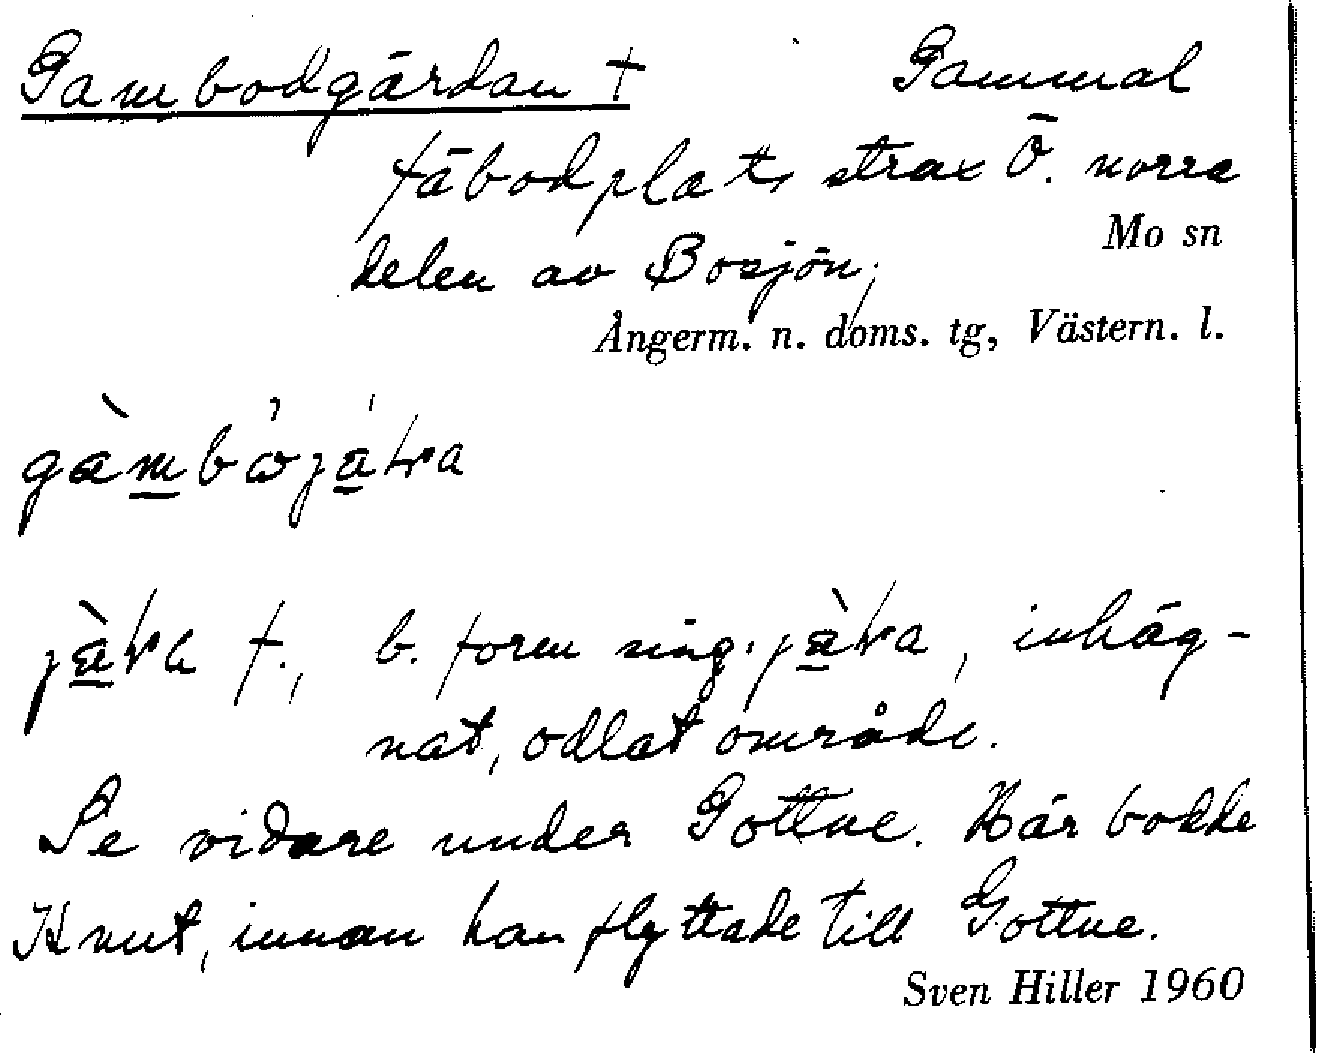 Gambodgärdan † Gammal
fäbodplats strax Ö. norra
Mo sn
delen av Bosjön,
Ångerm. n. doms. tg, Västern. l.
f., b. form sing. , inhäg-
nat, odlat område.
Se vidare under Gottne. Här bodde
Knut, innan han flyttade till Gottne.
Sven Hiller 1960